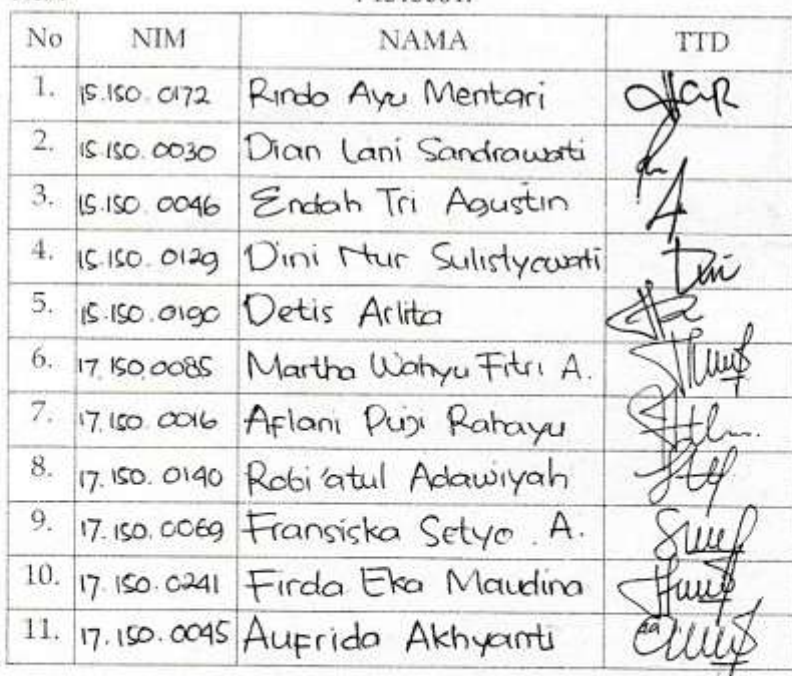 No NIM NAMA TTD
1. 15.150.0172 Rindo Ayu Mentari
2. 15.150.0030 Dian Lani Sandrawati
3. 15.150.0046 Endah Tri Agustin
4. 15.150.0129 Dini Nur Sulistyowati Dini
5. 15.150.0190 Detis Arlita
6. 17.150.0085 Martha Wahyu Fitri A.
7. 17.150.0016 Aflani Puji Rahayu
8. 17.150.0140 Robi'atul Adawiyah
9. 17.150.0069 Fransiska Setyo . A.
10. 17.150.0241 Firda Eka Maudina
11. 17.150.0045 Aufrida Akhyanti